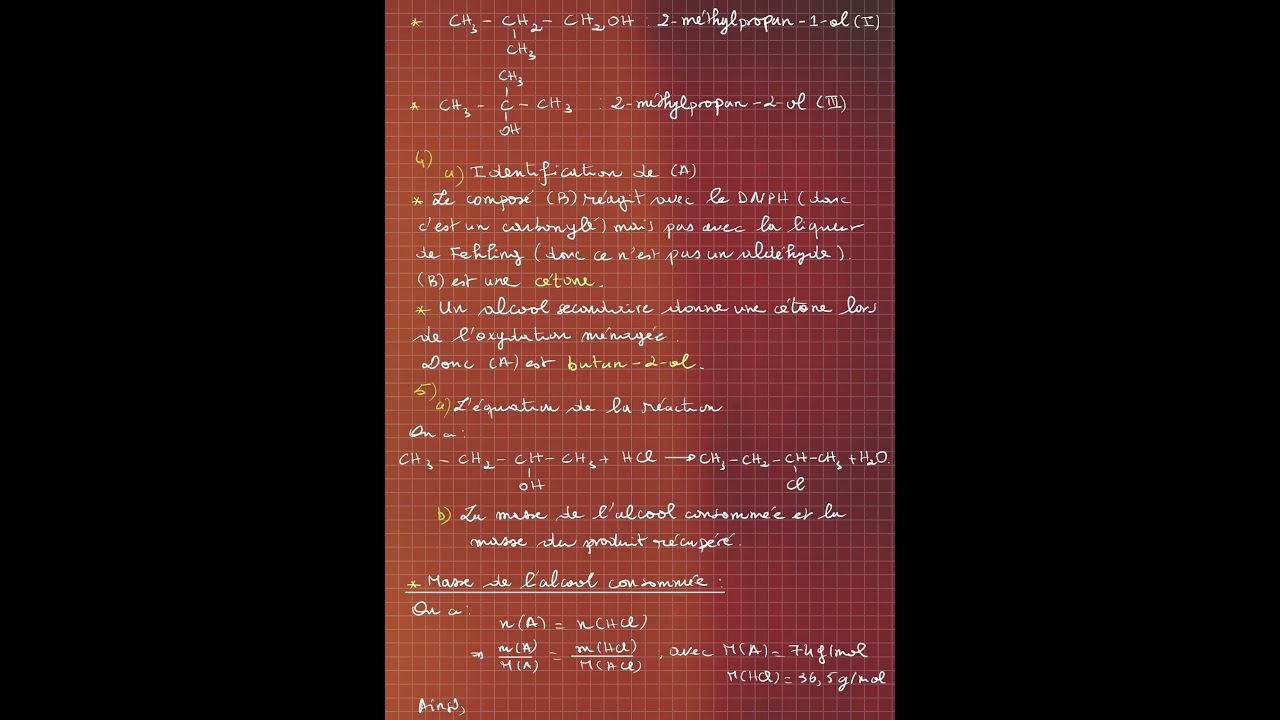 * CH₃ - CH₂ - CH₂OH : 2-méthylpropan-1-ol (I)
CH₃
CH₃
* CH₃ - C - CH₃ : 2-méthylpropan-2-ol (III)
OH
4)
a) Identification de (A)
* Le composé (B) réagit avec le DNPH (donc
c'est un carbonylé) mais pas avec la liqueur
de Fehling (donc ce n'est pas un aldéhyde).
(B) est une cétone.
* Un alcool secondaire donne une cétone lors
de l'oxydation ménagée.
Donc (A) est butan-2-ol.
5)
a) L'équation de la réaction
On a :
CH₃ - CH₂ - CH - CH₃ + HCl → CH₃ - CH₂ - CH - CH₃ + H₂O.
OH Cl
b) La masse de l'alcool consommée et la
masse du produit récupéré.
* Masse de l'alcool consommée :
On a :
n(A) = n(HCl)
⇒ m(A)/M(A) = m(HCl)/M(HCl), avec M(A) = 74g/mol
M(HCl) = 36,5g/mol
Ainsi,